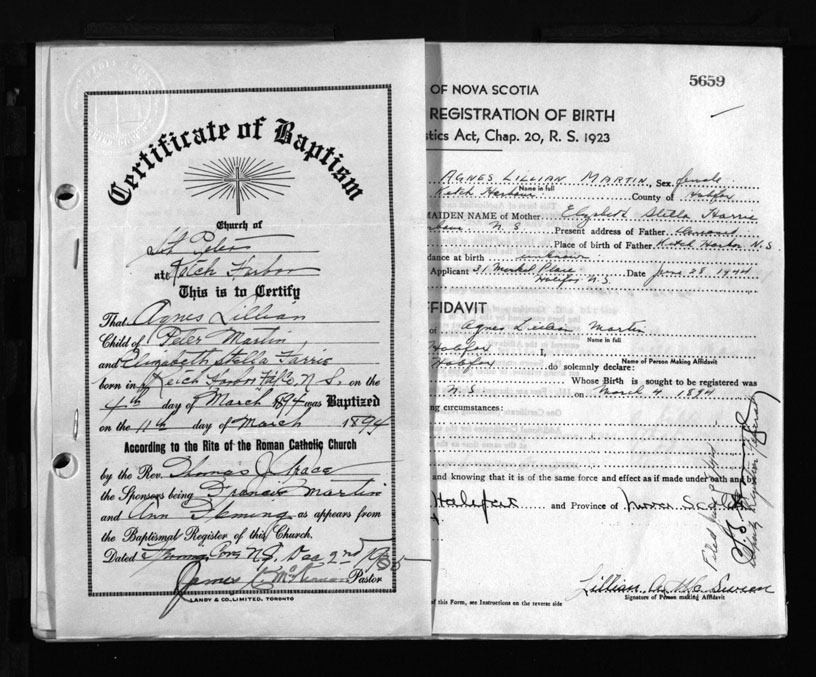 Certificate of Baptism
Church of
St Peters
at Ketch Harbor
This is to Certify
That Agnes Lillian
Child of Peter Martin
and Elizabeth Stella
born in Ketch Harbor Hfx Co, N.S. on the
4th day of March 1894 was Baptized
on the 11th day of March 1894
According to the Rite of the Roman Catholic Church
by the Rev. Thomas J.
the Sponsors being Francis Martin
and Ann Fleming as appears from
the Baptismal Register of this Church.
Dated N.S. Dec 2nd
James Pastor
LANDY & CO. LIMITED, TORONTO
5659
OF NOVA SCOTIA
REGISTRATION OF BIRTH
tics Act, Chap. 20, R. S. 1923
AGNES LILLIAN MARTIN, Sex female
Name in full
Ketch Harbour County of Halifax
MAIDEN NAME of Mother Elizabeth Stella
N. S. Present address of Father
Place of birth of Father Ketch Harbor N.S.
dance at birth unknown
Applicant 31 Place Date 28 1944
Halifax N.S.
FIDAVIT
of Agnes Lillian Martin
Name in full
Halifax I,
Halifax Name of Person Making Affidavit
do solemnly declare:
Whose Birth is sought to be registered was
N.S. on March 4 1894
ng circumstances:
and knowing that it is of the same force and effect as if made under oath and by
Halifax and Province of Nova Scotia
Filed
Deputy Registrar General
Lillian
Signature of Person making Affidavit
of this Form, see Instructions on the reverse side